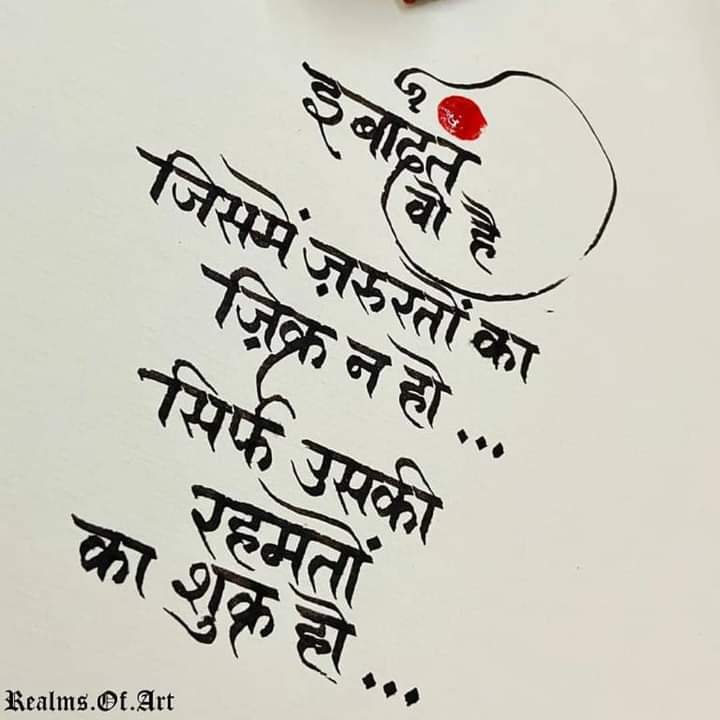 इबादत
वो है
जिसमें ज़रुरतों का
ज़िक्र न हो...
सिर्फ उसकी
रहमतों
का शुक्र हो...
Realms.Of.Art